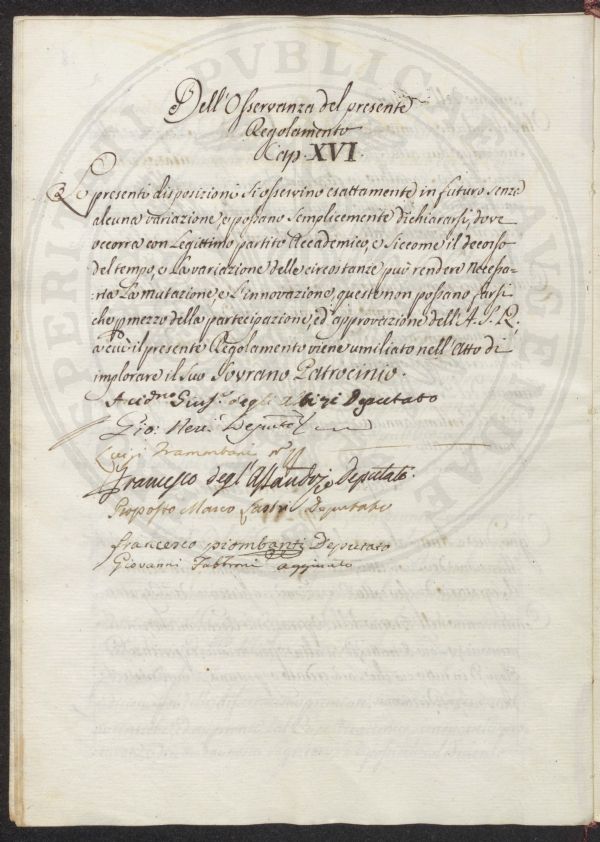 Dell'Osservanza del presente
Regolamento
Cap. XVI.
Le presenti disposizioni si osservino esattamente in futuro senza
alcuna variazione, e possano semplicemente dichiararsi, dove
occorra con Legittimo partito Accademico, e siccome il decorso
del tempo, e La variazione delle circostanze può rendere necessa-
ria La mutazione, e L'innovazione, queste non possano farsi
che p mezzo della partecipazione, ed approvazione dell'A. S. R.
a cui il presente Regolamento viene umiliato nell'Atto di
implorare il suo Sovrano Patrocinio.
degli Albizi Deputato
Gio: Neri Deputato
Luigi Tramontani
Francesco degl'Alessandri Deputato.
Proposto Marco Lastri Deputato
Francesco Piombanti Deputato
Giovanni Fabbroni aggiunto